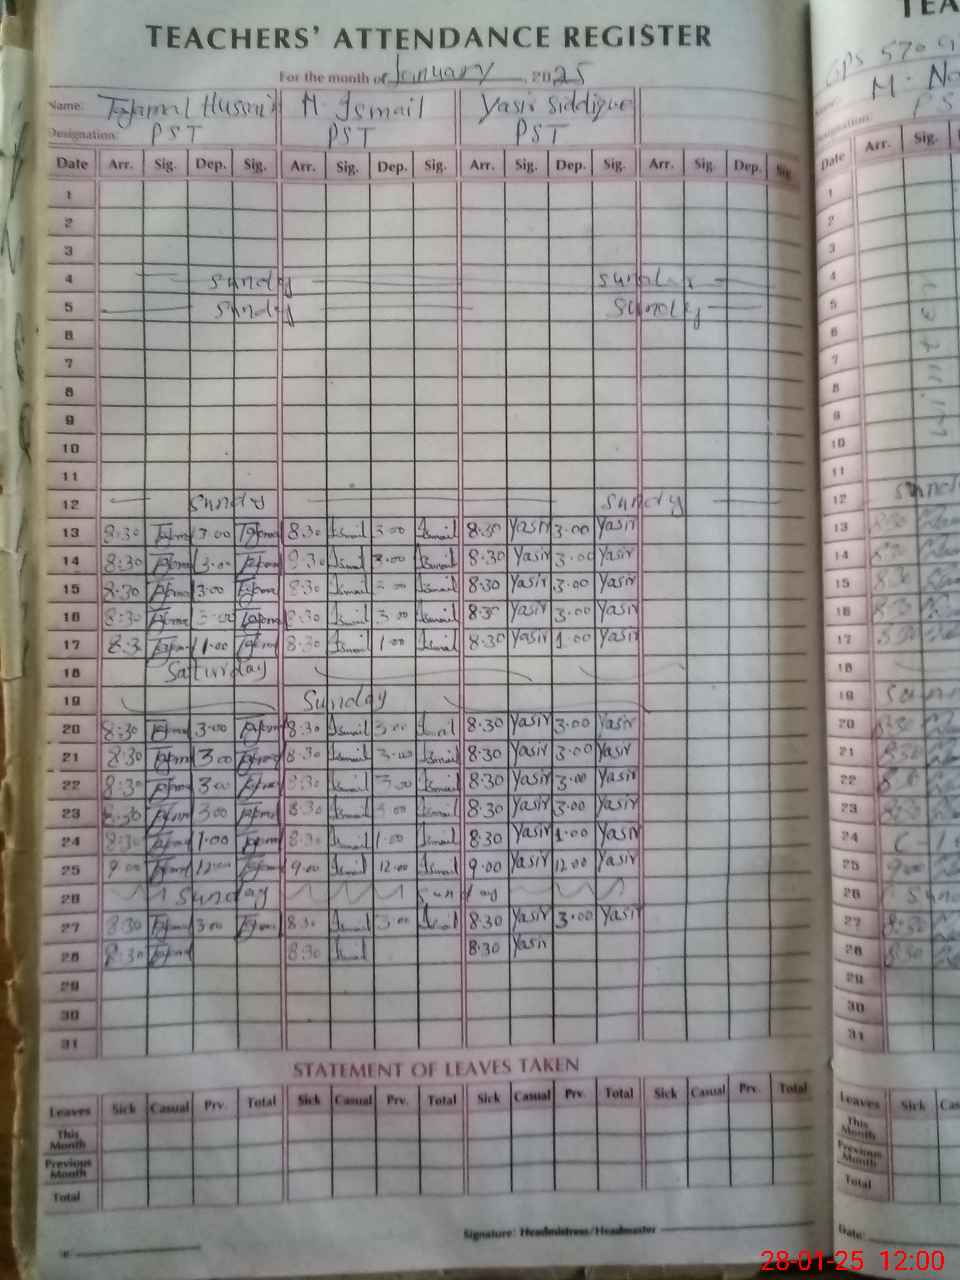 TEACHERS' ATTENDANCE REGISTER
For the month of January, 2025
Name: Tajamal Hussain M. Ismail Yasir Siddique
Designation: PST PST PST
Date Arr. Sig. Dep. Sig. Arr. Sig. Dep. Sig. Arr. Sig. Dep. Sig. Arr. Sig. Dep. Sig.
1
2
3
4 Sunday Sunday
5 Sunday Sunday
6
7
8
9
10
11
12 Sunday Sunday
13 8:30 Tajamal 3:00 Tajamal 8:30 Ismail 3:00 Ismail 8:30 Yasir 3:00 Yasir
14 8:30 Tajamal 3:00 Tajamal 8:30 Ismail 3:00 Ismail 8:30 Yasir 3:00 Yasir
15 8:30 Tajamal 3:00 Tajamal 8:30 Ismail 3:00 Ismail 8:30 Yasir 3:00 Yasir
16 8:30 Tajamal 3:00 Tajamal 8:30 Ismail 3:00 Ismail 8:30 Yasir 3:00 Yasir
17 8:3 Tajamal 1:00 Tajamal 8:30 Ismail 1:00 Ismail 8:30 Yasir 1:00 Yasir
18 Saturday
19 Sunday
20 8:30 Tajamal 3:00 Tajamal 8:30 Ismail 3:00 Ismail 8:30 Yasir 3:00 Yasir
21 8:30 Tajamal 3:00 Tajamal 8:30 Ismail 3:00 Ismail 8:30 Yasir 3:00 Yasir
22 8:30 Tajamal 3:00 Tajamal 8:30 Ismail 3:00 Ismail 8:30 Yasir 3:00 Yasir
23 8:30 Tajamal 3:00 Tajamal 8:30 Ismail 3:00 Ismail 8:30 Yasir 3:00 Yasir
24 8:30 Tajamal 1:00 Tajamal 8:30 Ismail 1:00 Ismail 8:30 Yasir 1:00 Yasir
25 9:00 Tajamal 12:00 Tajamal 9:00 Ismail 12:00 Ismail 9:00 Yasir 12:00 Yasir
26 Sunday Sunday
27 8:30 Tajamal 3:00 Tajamal 8:30 Ismail 3:00 Ismail 8:30 Yasir 3:00 Yasir
28 8:30 Tajamal 8:30 Ismail 8:30 Yasir
29
30
31
STATEMENT OF LEAVES TAKEN
Leaves Sick Casual Prv. Total Sick Casual Prv. Total Sick Casual Prv. Total Sick Casual Prv. Total
This Month
Previous Month
Total
Signature: Headmistress/Headmaster
TEA
GPS 570
M. 
Date Arr. Sig.
1
2
3
4
5
6
7
8
9
10
11
12
13
14
15
16
17
18
19
20
21
22
23
24
25
26
27
28
29
30
31
Leaves Sick
This Month
Previous Month
Total
Date:
28-01-25 12:00